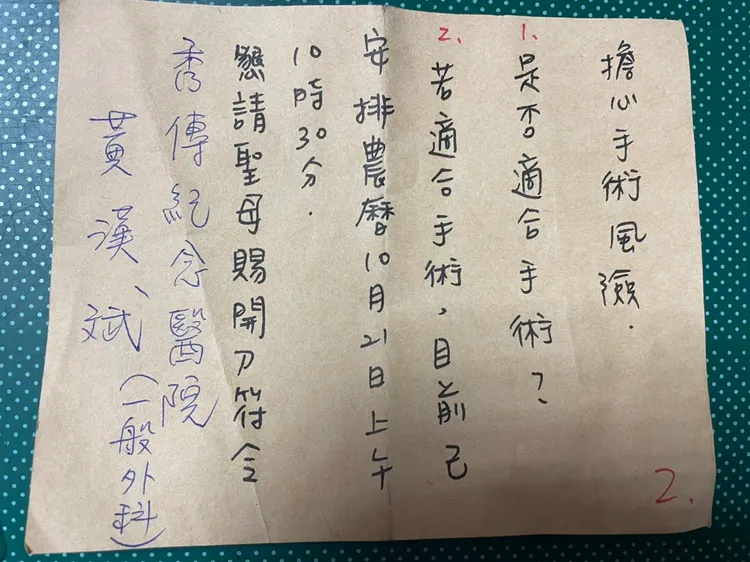 擔心手術風險.
1. 是否適合手術？
2. 若適合手術，目前已
安排農曆10月21日上午
10時30分.
懇請聖母賜開刀符令
秀傳紀念醫院
黃漢斌(一般外科)
2.